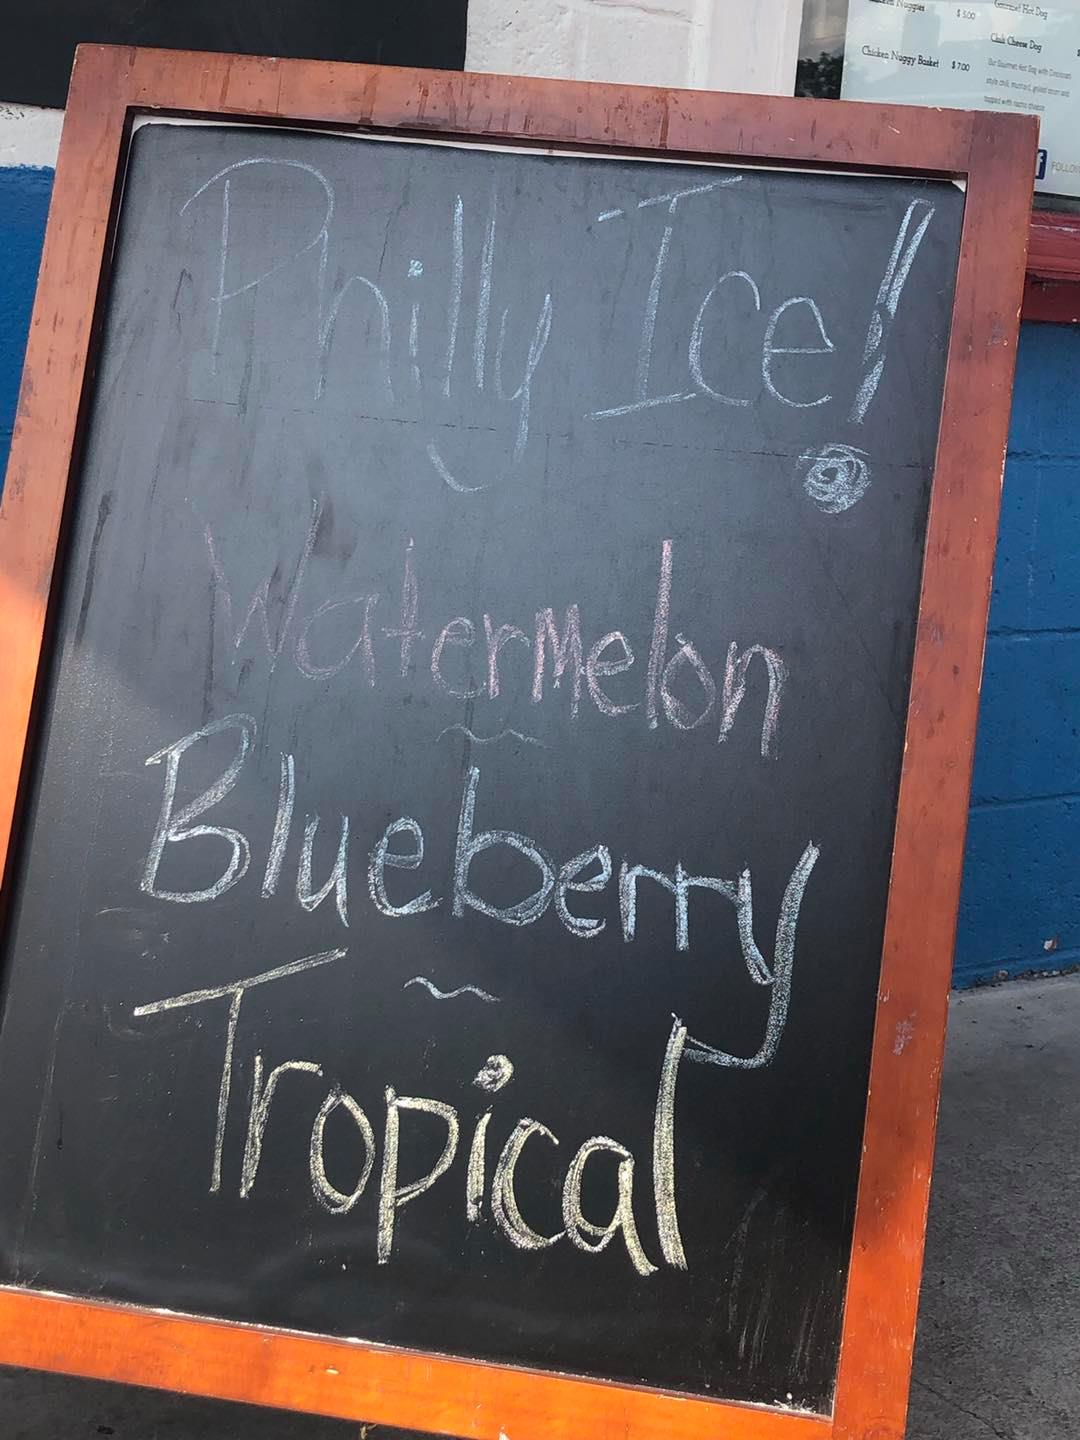 Philly Ice!
Watermelon
~
Blueberry
~
Tropical
Nuggies $5.00
Chicken Nuggy Basket $7.00
Gourmet Hot Dog
Chili Cheese Dog
Our Gourmet Hot Dog with Cincinnati
style chili, mustard, grilled onion and
topped with nacho cheese
f FOLLOW